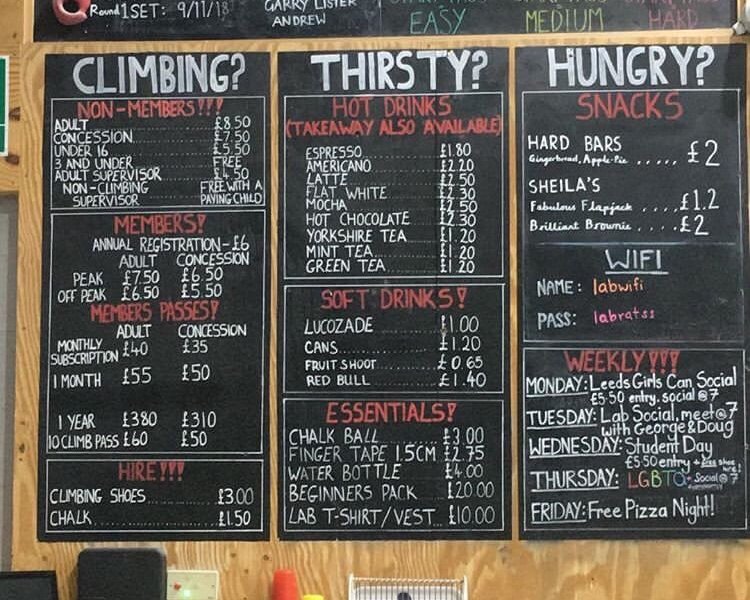 Round 1 SET: 9/11/18
GARRY LISTER
ANDREW
EASY
MEDIUM
HARD
CLIMBING?
NON-MEMBERS!!!
ADULT £8.50
CONCESSION £7.50
UNDER 16 £5.50
3 AND UNDER FREE
ADULT SUPERVISOR £4.50
NON-CLIMBING FREE WITH A
SUPERVISOR PAYING CHILD
MEMBERS!
ANNUAL REGISTRATION-£6
ADULT CONCESSION
PEAK £7.50 £6.50
OFF PEAK £6.50 £5.50
MEMBERS PASSES!
ADULT CONCESSION
MONTHLY
SUBSCRIPTION £40 £35
1 MONTH £55 £50
1 YEAR £380 £310
10 CLIMB PASS £60 £50
HIRE!!!
CLIMBING SHOES £3.00
CHALK £1.50
THIRSTY?
HOT DRINKS
(TAKEAWAY ALSO AVAILABLE)
ESPRESSO £1.80
AMERICANO £2.20
LATTE £2.50
FLAT WHITE £2.30
MOCHA £2.50
HOT CHOCOLATE £2.30
YORKSHIRE TEA £1.20
MINT TEA £1.20
GREEN TEA £1.20
SOFT DRINKS!
LUCOZADE £1.00
CANS £1.20
FRUIT SHOOT £0.65
RED BULL £1.40
ESSENTIALS!
CHALK BALL £3.00
FINGER TAPE 1.5CM £2.75
WATER BOTTLE £4.00
BEGINNERS PACK £20.00
LAB T-SHIRT/VEST £10.00
HUNGRY?
SNACKS
HARD BARS
Gingerbread, Apple-Pie ..... £2
SHEILA'S
Fabulous Flapjack .... £1.2
Brilliant Brownie .... £2
WIFI
NAME: labwifi
PASS: labratss
WEEKLY!!!
MONDAY: Leeds Girls Can Social
£5.50 entry, social @7
TUESDAY: Lab Social, meet@7
with George & Doug
WEDNESDAY: Student Day
£5.50 entry + free shoe hire!
THURSDAY: LGBTQ+ Social @ 7
FRIDAY: Free Pizza Night!